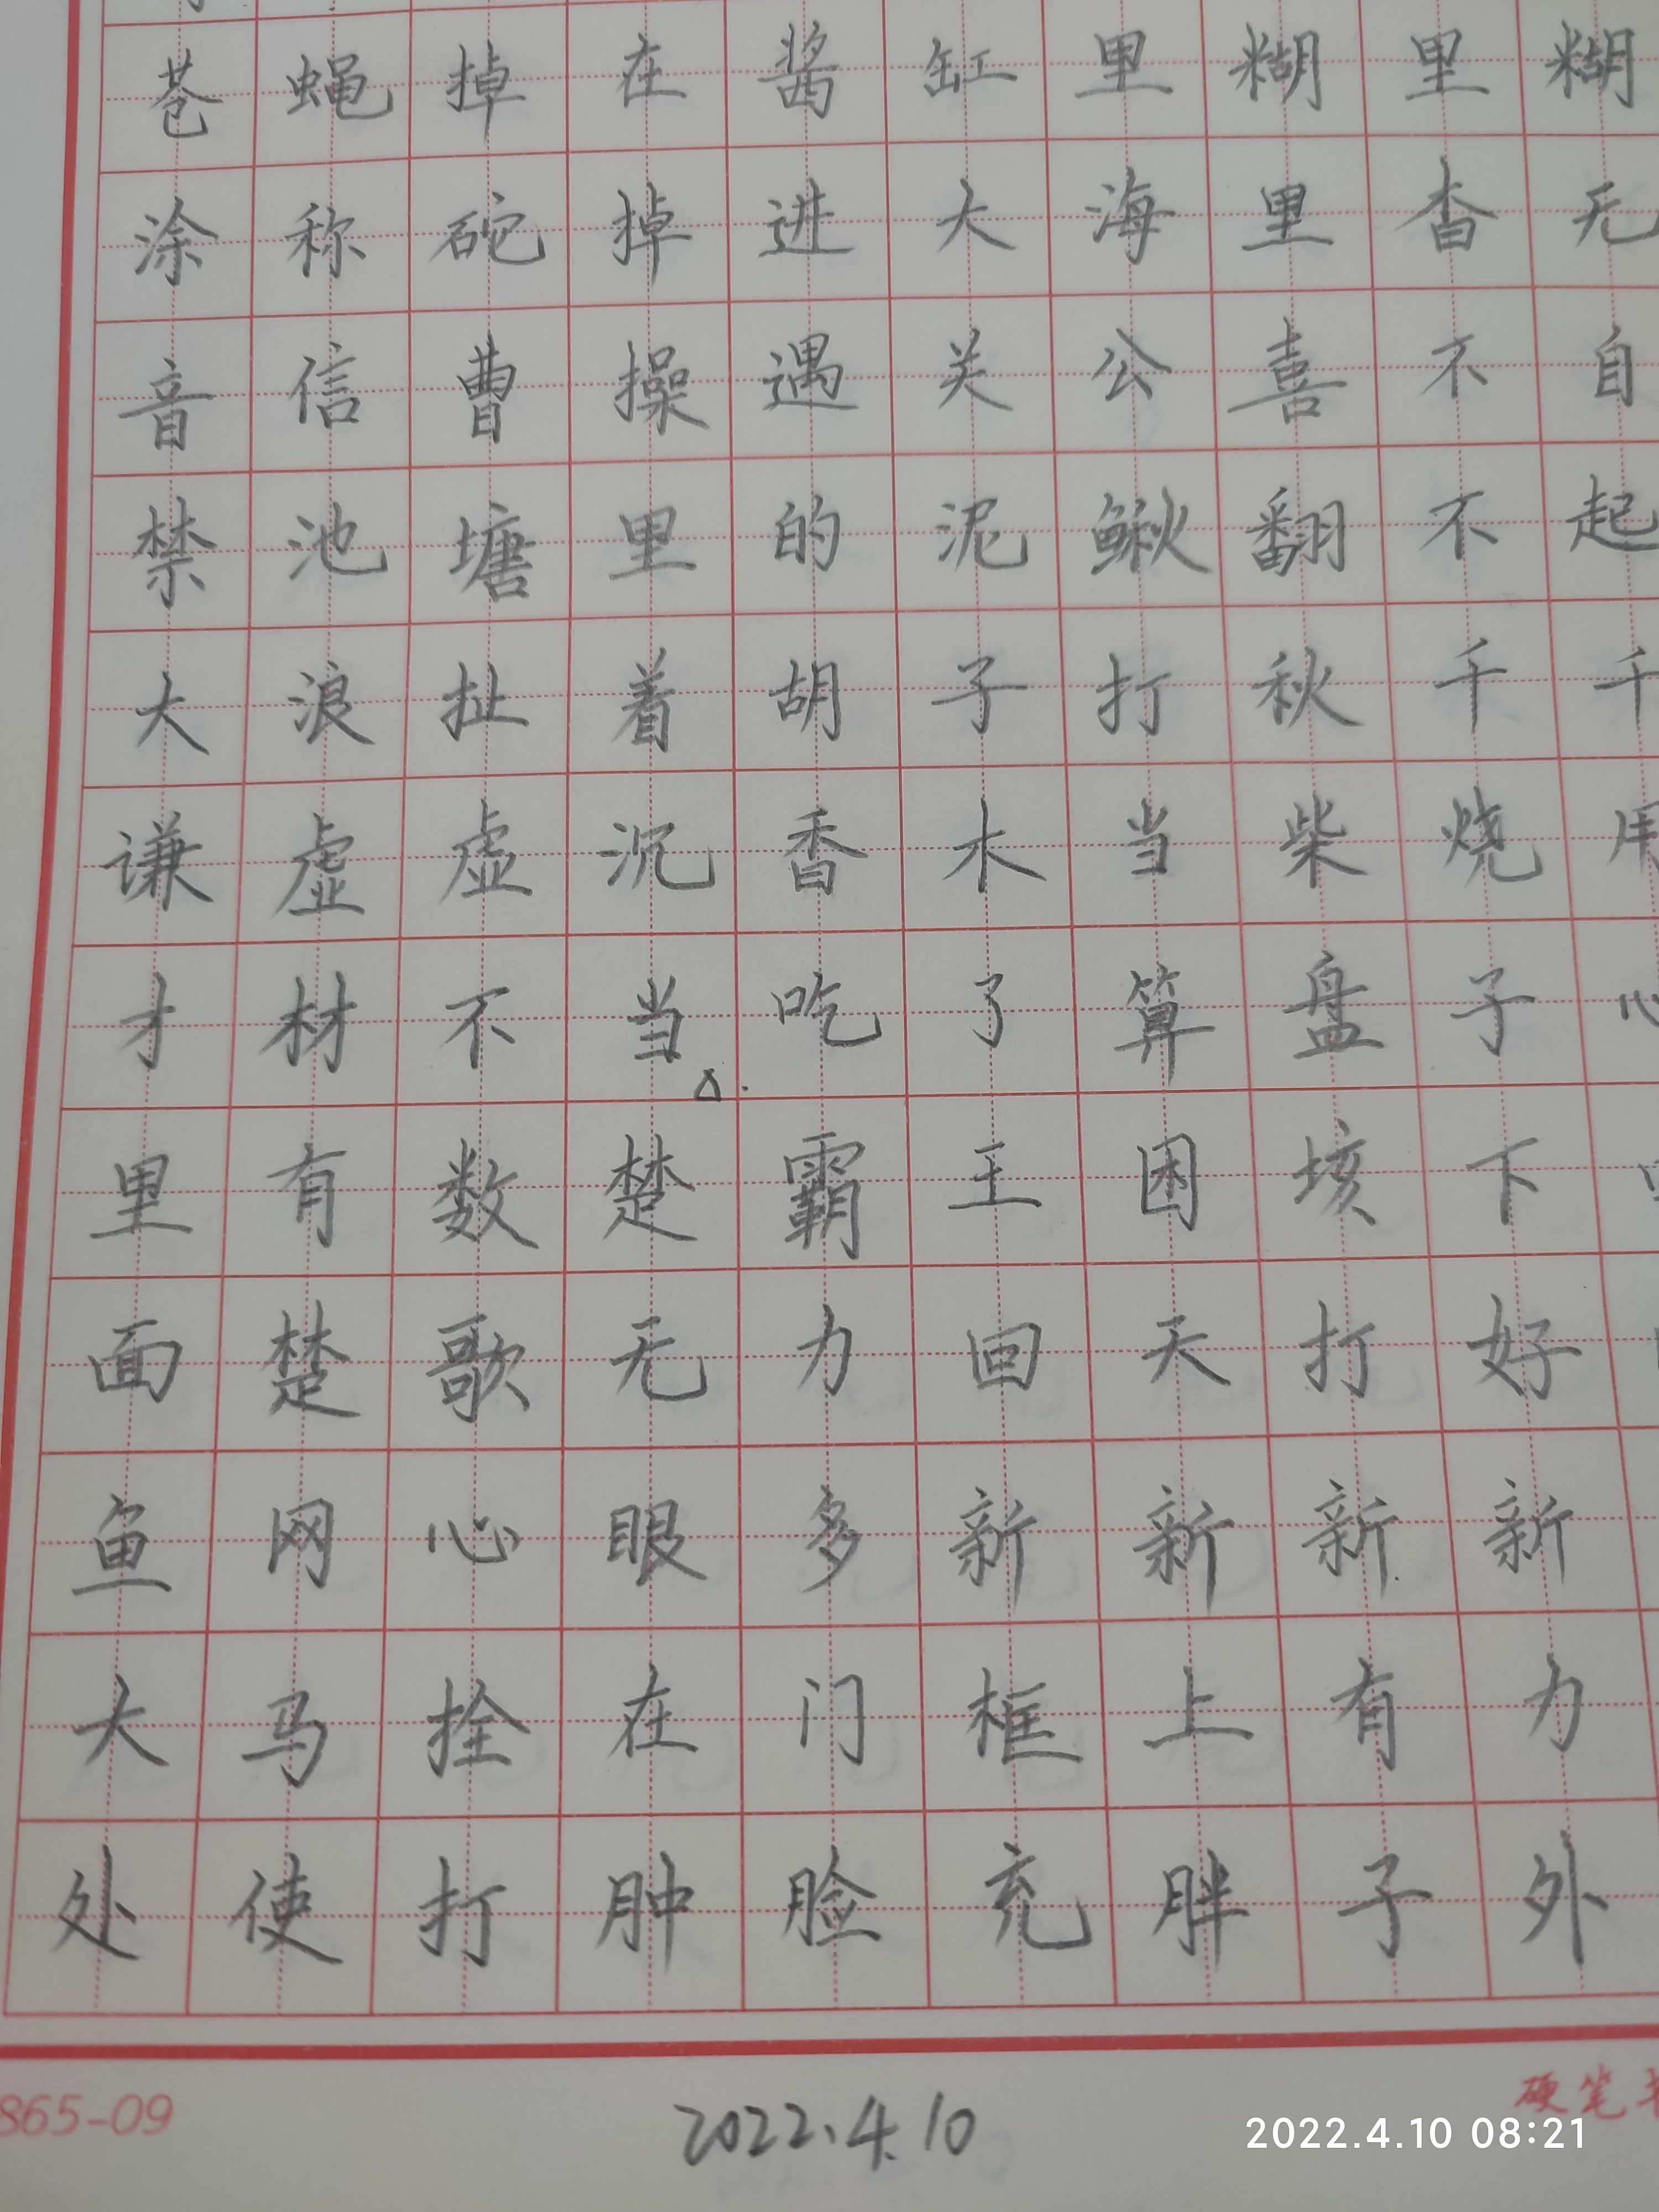 苍蝇掉在酱缸里糊里糊
涂称砣掉进大海里杳无
音信曹操遇关公喜不自
禁池塘里的泥鳅翻不起
大浪扯着胡子打秋千千
谦虚虚沉香木当柴烧用
才材不当吃了算盘子心
里有数楚霸王困垓下
面楚歌无力回天打好
鱼网心眼多新新新新
大马拴在门框上有力
处使打肿脸充胖子外
865-09
2022.4.10
硬笔
2022.4.10 08:21